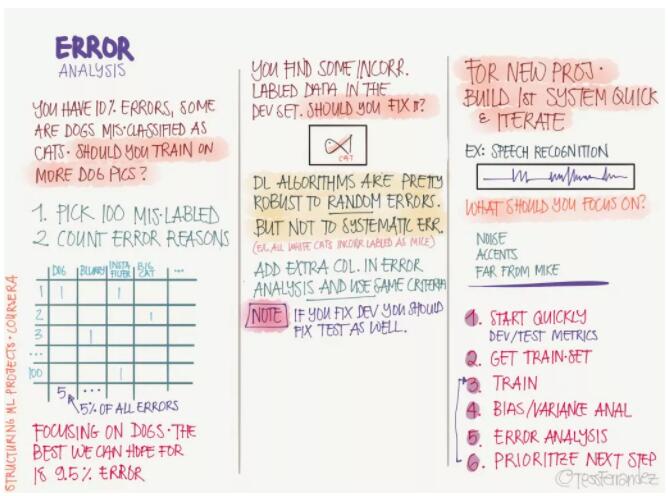 ERROR
ANALYSIS
YOU HAVE 10% ERRORS, SOME
ARE DOGS MIS-CLASSIFIED AS
CATS. SHOULD YOU TRAIN ON
MORE DOG PICS?
1. PICK 100 MIS-LABLED
2. COUNT ERROR REASONS
DOG BLURRY INSTA FILTER BIG CAT ...
1 1 1
2 1
3 1
...
100 1
5 ...
5% OF ALL ERRORS
FOCUSING ON DOGS. THE
BEST WE CAN HOPE FOR
IS 9.5% ERROR
STRUCTURING ML PROJECTS. COURSERA
YOU FIND SOME INCORR.
LABLED DATA IN THE
DEV SET. SHOULD YOU FIX IT?
CAT
DL ALGORITHMS ARE PRETTY
ROBUST TO RANDOM ERRORS.
BUT NOT TO SYSTEMATIC ERR.
(EX. ALL WHITE CATS INCORR LABLED AS MICE)
ADD EXTRA COL. IN ERROR
ANALYSIS AND USE SAME CRITERIA
NOTE IF YOU FIX DEV YOU SHOULD
FIX TEST AS WELL.
FOR NEW PROJ.
BUILD 1st SYSTEM QUICK
& ITERATE
EX: SPEECH RECOGNITION
WHAT SHOULD YOU FOCUS ON?
NOISE
ACCENTS
FAR FROM MIKE
1. START QUICKLY
DEV/TEST METRICS
2. GET TRAIN-SET
3. TRAIN
4. BIAS/VARIANCE ANAL
5. ERROR ANALYSIS
6. PRIORITIZE NEXT STEP
©TessFerrandez